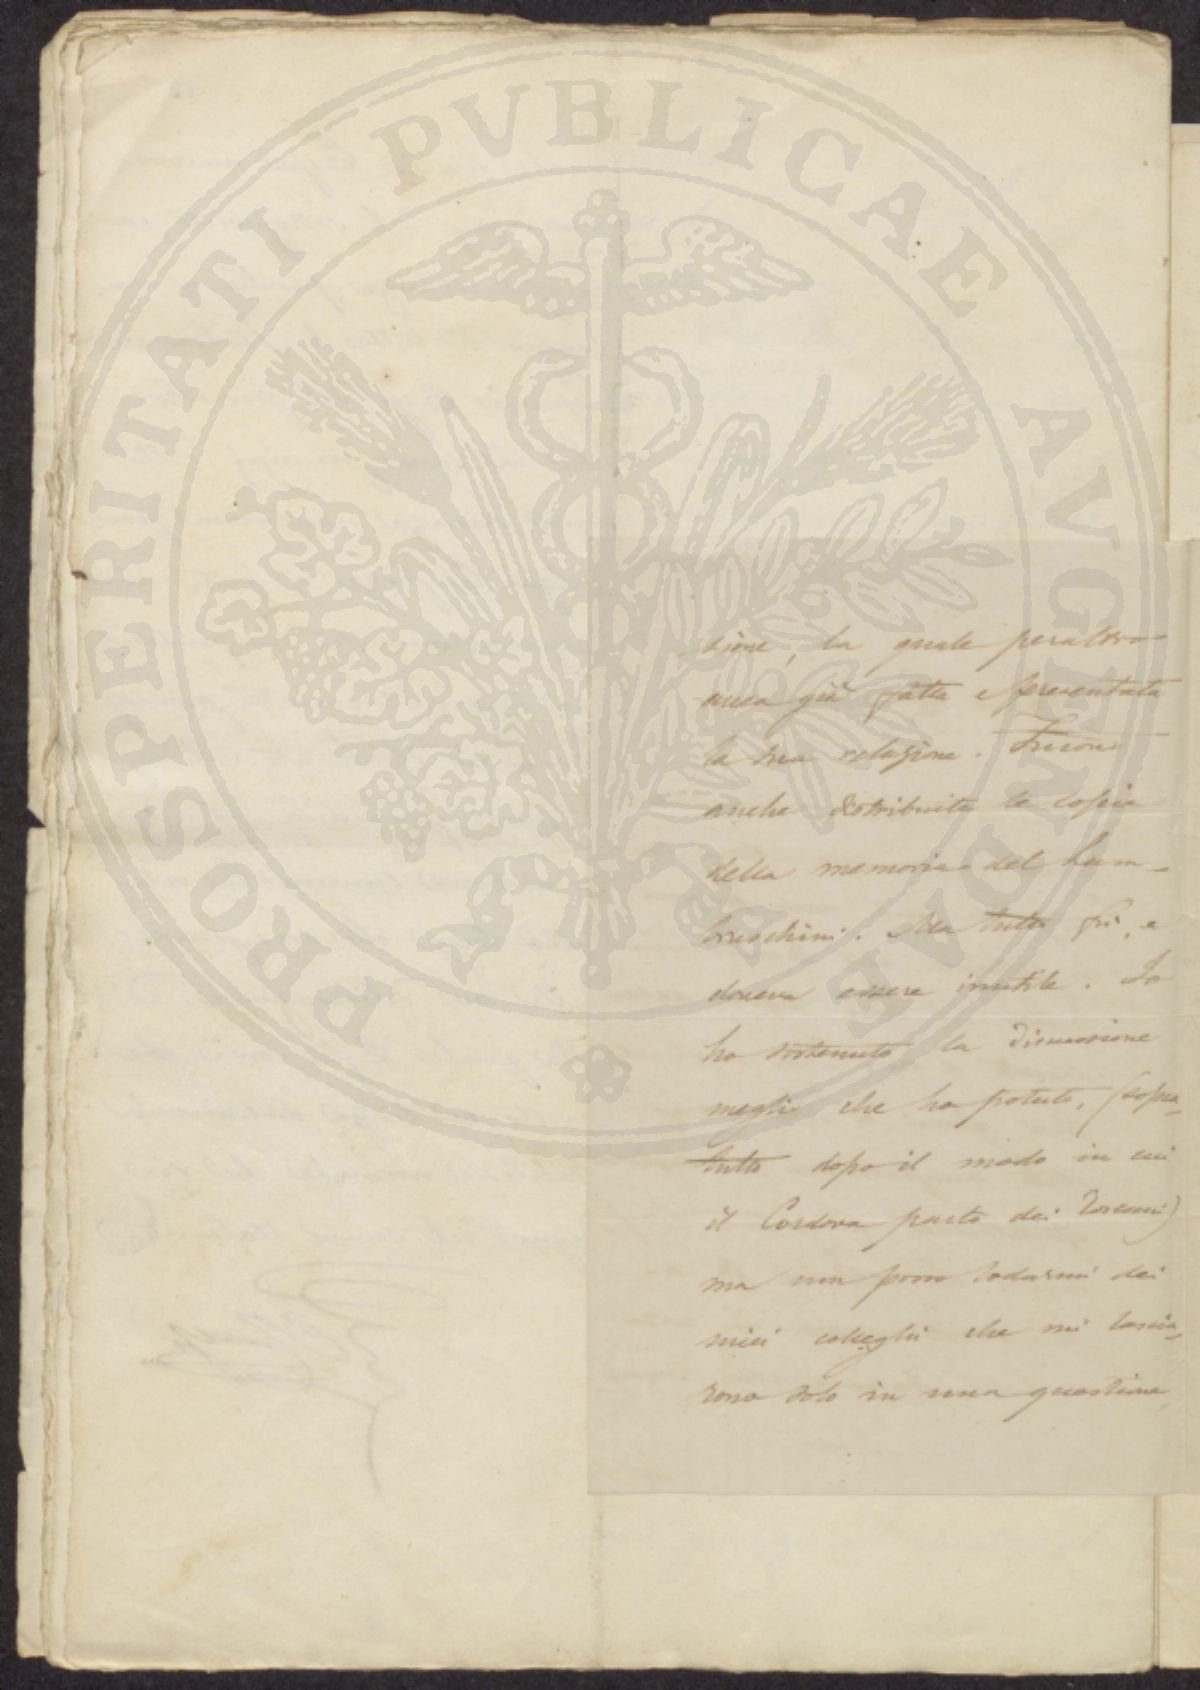 PROSPERITATI PVBLICAE AVGENDAE
sione, la quale peraltro
avea già fatta e presentata
la sua relazione. Furono
anche distribuite le copie
della memoria del Lam-
bruschini. Ma tutto fu, e
doveva essere inutile. Io
ho sostenuto la discussione
meglio che ho potuto, (sopra-
tutto dopo il modo in cui
il Cordova parlò dei Toscani)
ma non posso lodarmi dei
miei colleghi che mi lascia-
rono solo in una questione